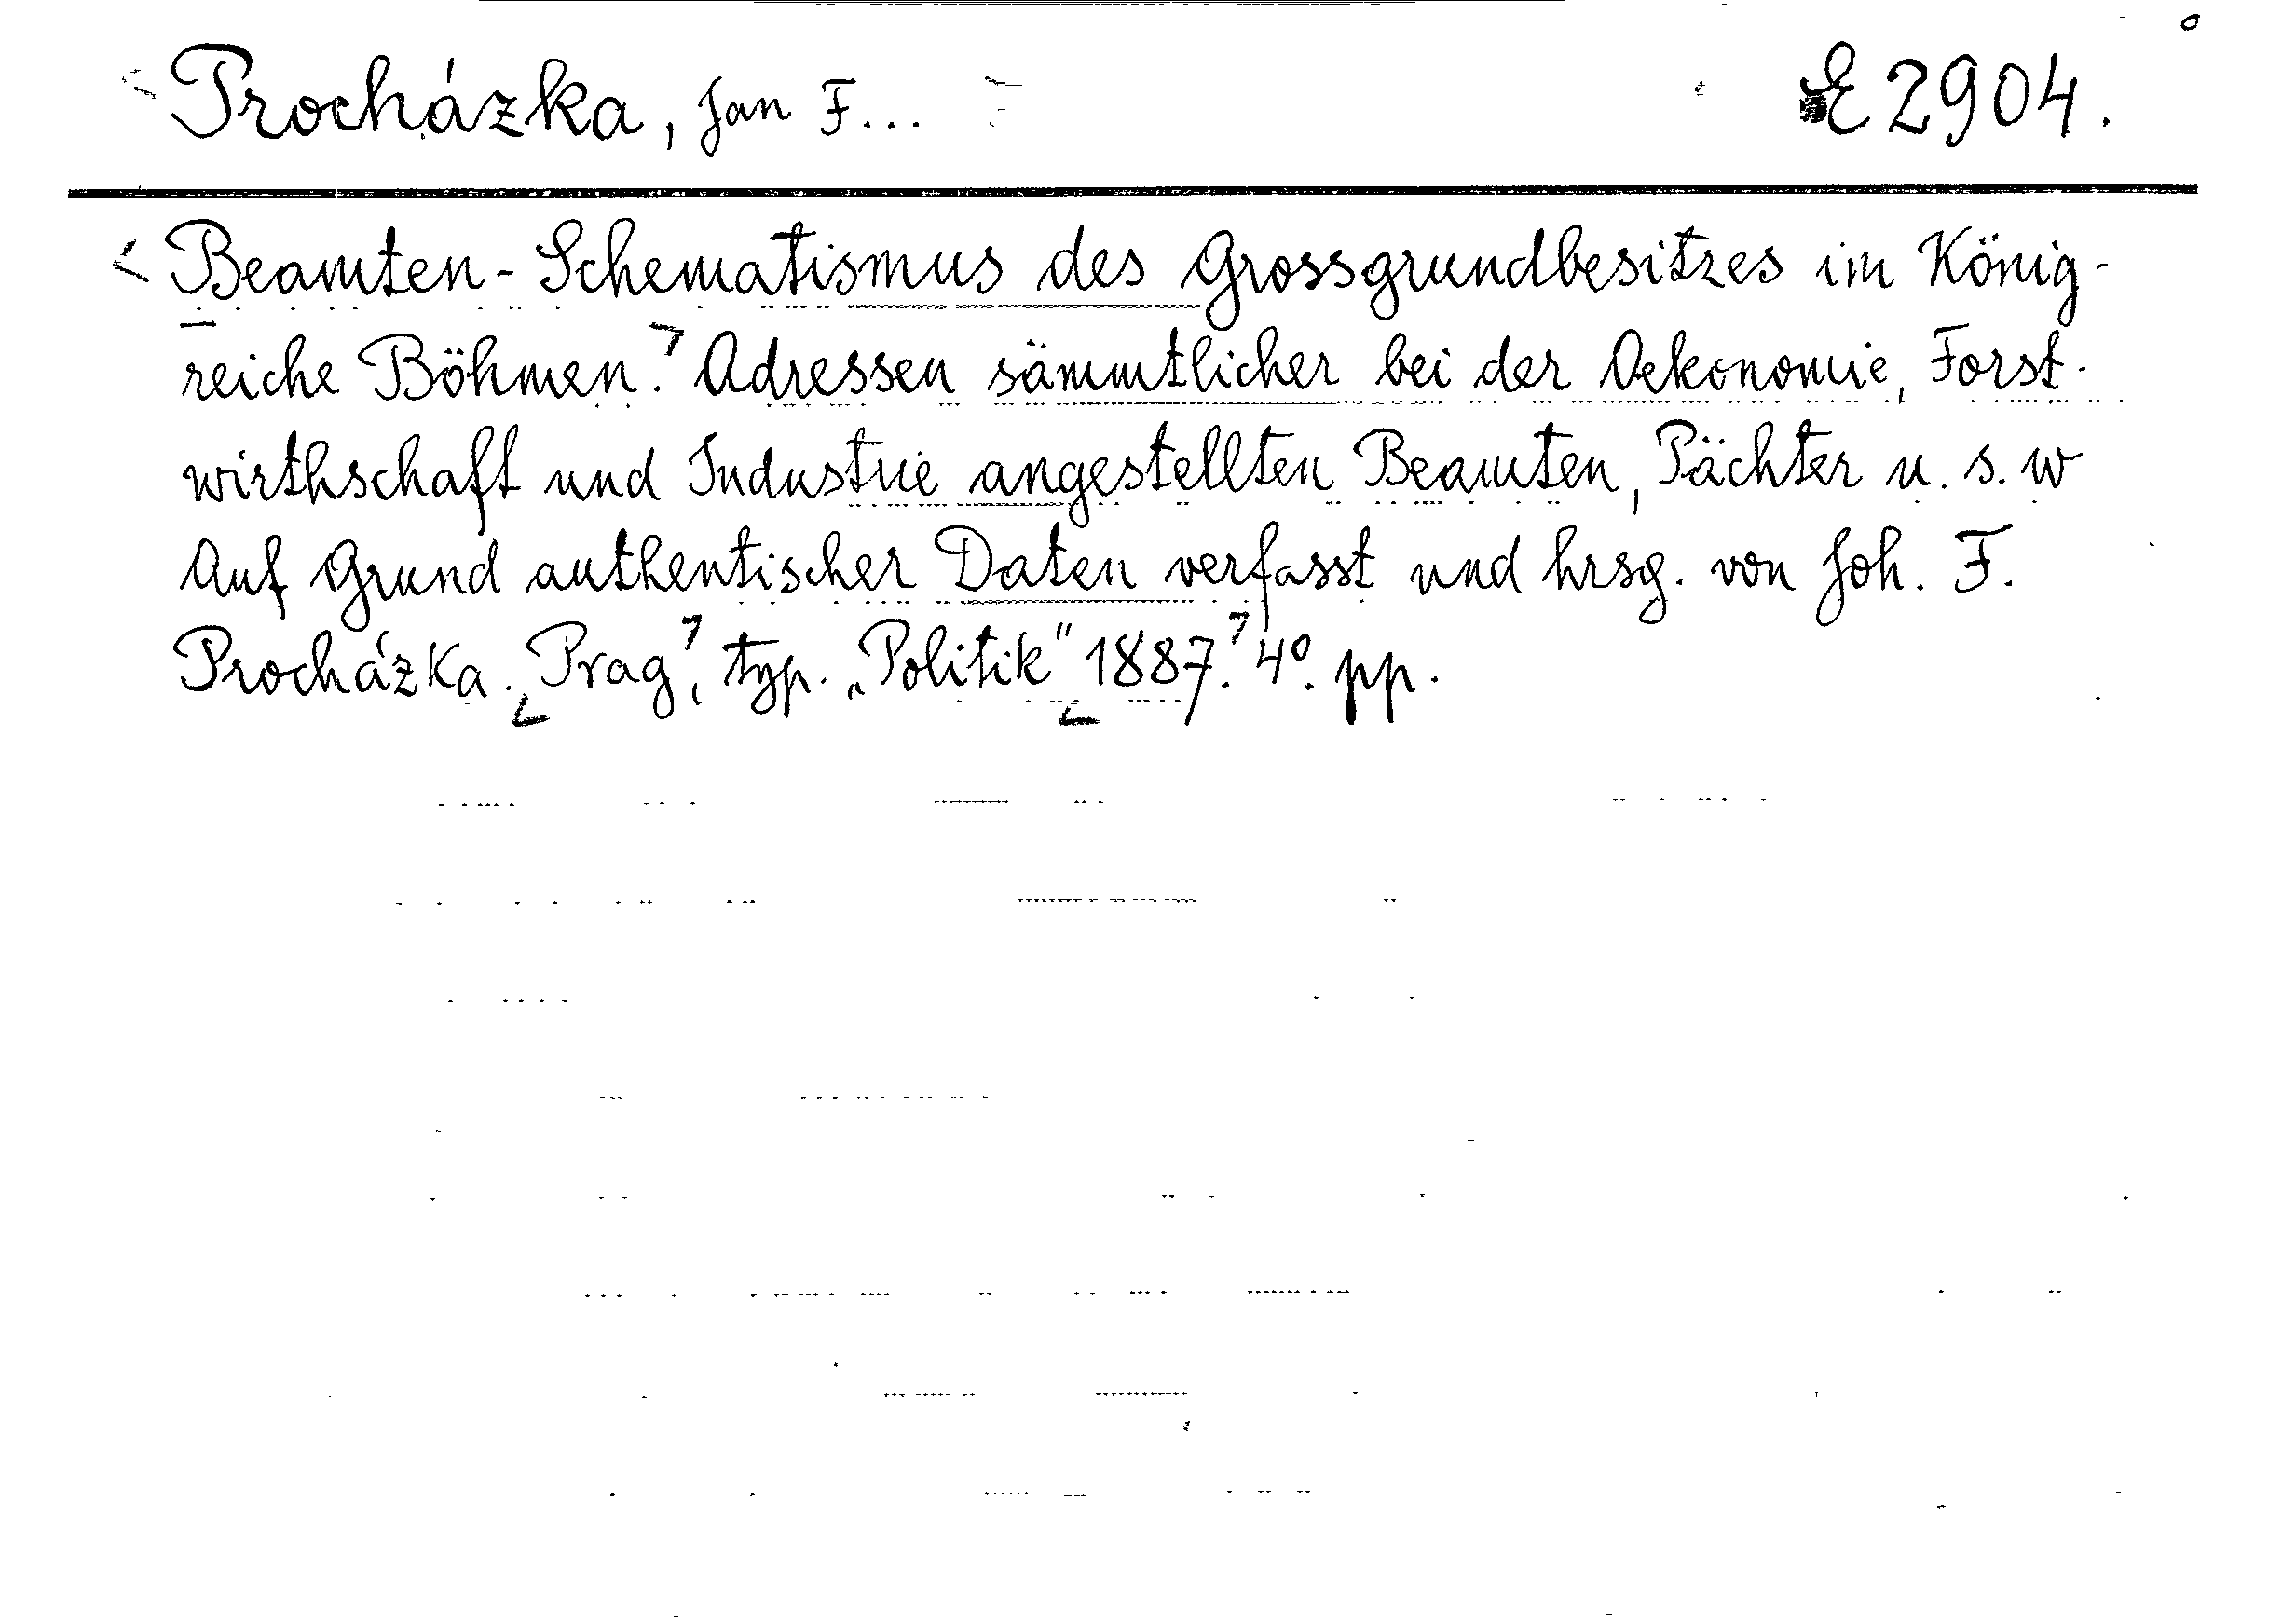 Procházka, Jan F... E 2904.
Beamten-Schematismus des Grossgrundbesitzes im König-
reiche Böhmen. Adressen sämmtlicher bei der Oekonomie, Forst-
wirthschaft und Industrie angestellten Beamten, Pächter u. s. w
Auf Grund authentischer Daten verfasst und hrsg. von Joh. F.
Procházka. Prag, typ. „Politik" 1887. 4º. pp.